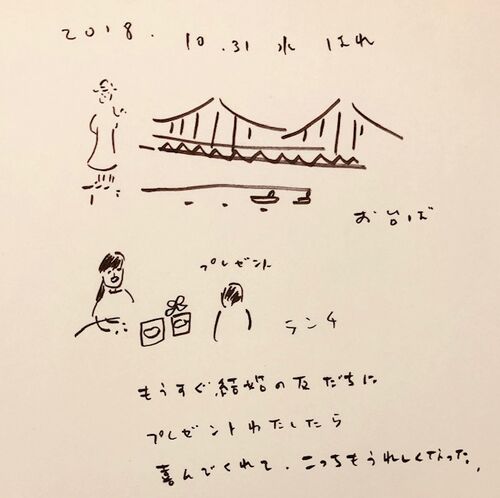 2018. 10.31 水 はれ
お台ば
プレゼント
ランチ
もうすぐ結婚の友だちに
プレゼントわたしたら
喜んでくれて、こっちもうれしくなった。